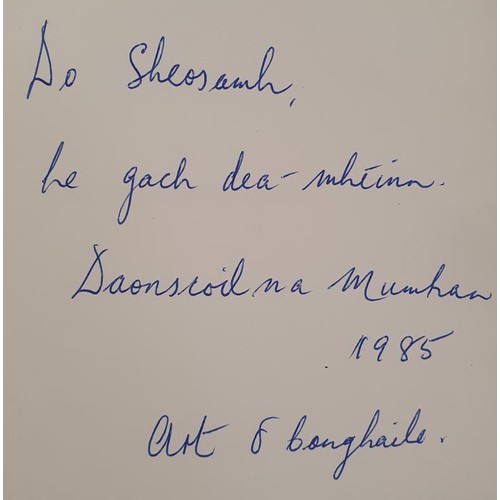 Do Sheosamh,
le gach dea-mhéinn.
Daonscoil na Mumhan
1985
Art Ó Conghaile.